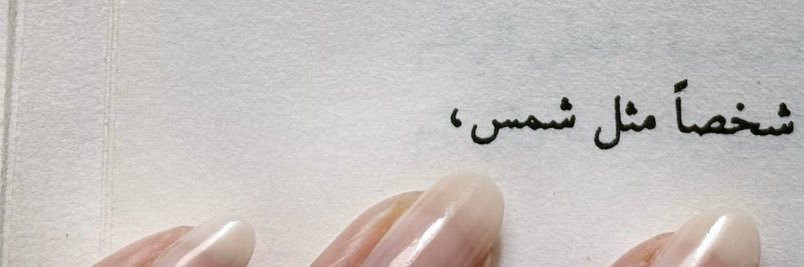 شخصاً مثل شمس،